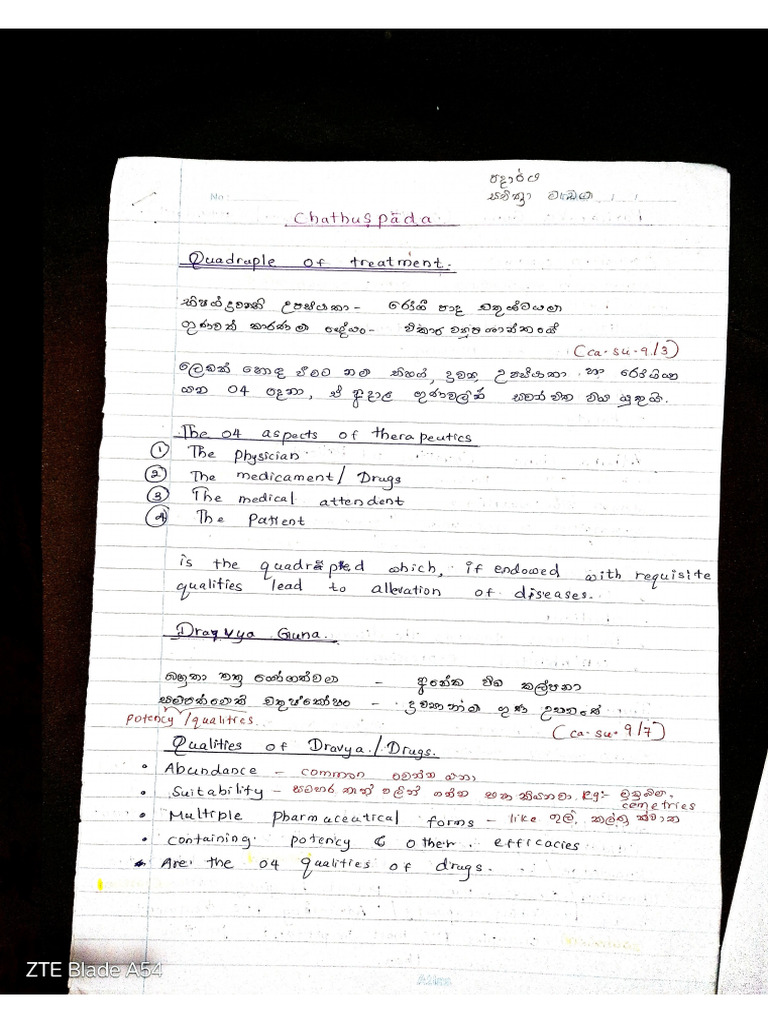 පදාර්ථ
No:
Chathuṣpāda
Quadruple of treatment.
භිෂග් ද්‍රව්‍යානි උපස්ථාතා - රෝගී පාද චතුෂ්ටයම්
ගුණවත් කාරණම් ඥේයං - විකාර ව්‍යුපශාන්තයේ
(ca. su. 9/3)
ලෙඩක් හොඳ වීමට නම් භිෂග්, ද්‍රව්‍ය, උපස්ථාතා හා රෝගියා
යන 04 දෙනා, ඒ අදාල ගුණවලින් සමන්විත විය යුතුයි.
The 04 aspects of therapeutics
① The physician
② The medicament / Drugs
③ The medical attendent
④ The Patient
is the which, if endowed with requisite
qualities lead to allevation of diseases.
Dravya Guna.
බහුතා තත්‍ර යෝගත්වම් - අනේක විධ කල්පනා
සම්පත්චේති චතුෂ්කෝයං - ද්‍රව්‍යානාං ගුණ උච්‍යතේ
potency / qualities
(ca. su. 9/7)
Qualities of Dravya / Drugs.
• Abundance - common වෙන්න ඕනා
• Suitability - සමහර තැන් වලින් ගන්න එපා කියනවා. Eg:-
cemetries
• Multiple pharmaceutical forms - like ගුලි, කල්ක, ක්වාත
• containing potency & other efficacies
• Are the 04 qualities of drugs.
Atlas
ZTE Blade A54